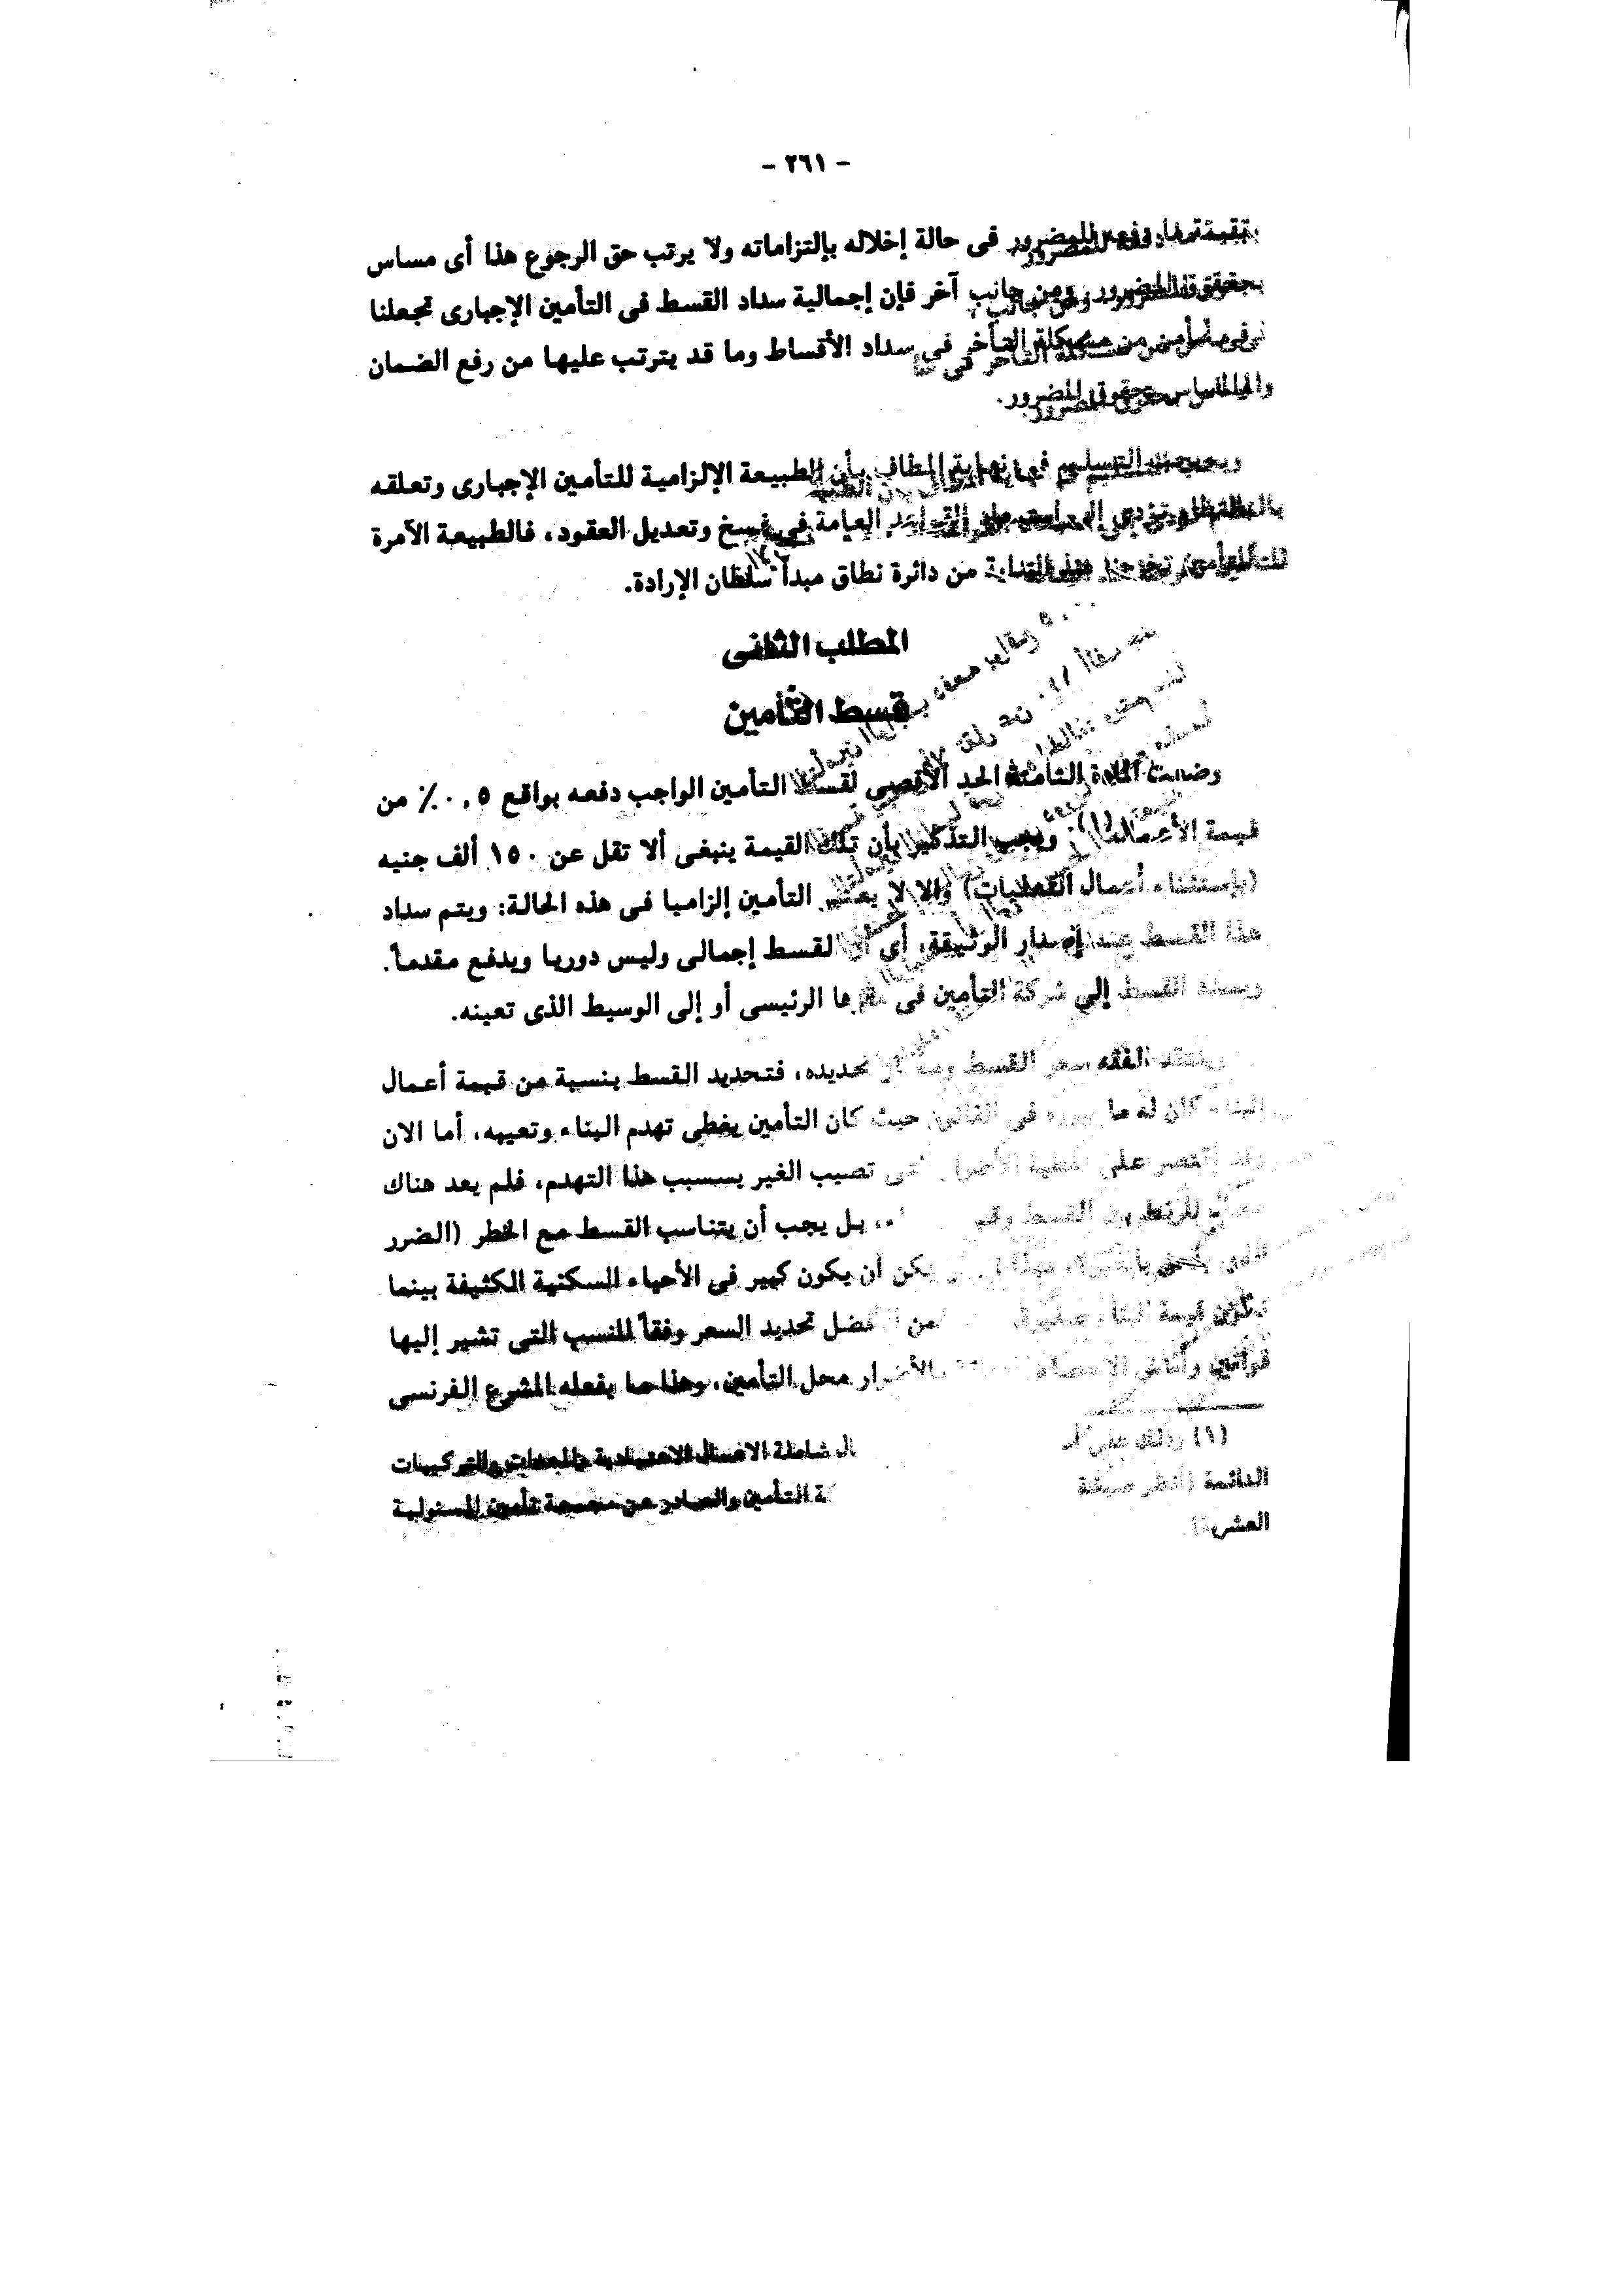 - ٢٦١ -
بقيمة ما دفعه للمضرور فى حالة إخلاله بإلتزاماته ولا يرتب حق الرجوع هذا أى مساس
بحقوق المضرور. ومن جانب آخر فإن إجمالية سداد القسط فى التأمين الإجبارى تجعلنا
فى مأمن من مشكلة التأخر فى سداد الأقساط وما قد يترتب عليها من رفع الضمان
والمساس بحقوق المضرور.
ويجب التسليم فى نهاية المطاف بأن الطبيعة الإلزامية للتأمين الإجبارى وتعلقه
تؤدى إلى القواعد العامة فى فسخ وتعديل العقود، فالطبيعة الآمرة
للتأمين تخرجنا منذ البداية من دائرة نطاق مبدأ سلطان الإرادة.
المطلب الثانى
قسط التأمين
وضعت المادة الثامنة الحد الأقصى لقسط التأمين الواجب دفعه بواقع ٠,٥٪ من
قيمة الأعمال (١). ويجب التذكير بأن تلك القيمة ينبغى ألا تقل عن ١٥٠ ألف جنيه
(بإستثناء أعمال التعليات) وإلا لا يعتبر التأمين إلزاميا فى هذه الحالة: ويتم سداد
هذا القسط عند إصدار الوثيقة، أى أن القسط إجمالى وليس دوريا ويدفع مقدماً.
ويسدد القسط إلى شركة التأمين فى مقرها الرئيسى أو إلى الوسيط الذى تعينه.
وينتقد الفقه سعر القسط تحديده، فتحديد القسط بنسبة من قيمة أعمال
البناء كان له ما يبرره فى حيث كان التأمين يغطى تهدم البناء وتعيبه، أما الان
وقد إقتصر على تغطية الأضرار التى تصيب الغير بسسبب هذا التهدم، فلم يعد هناك
مجال للربط بين القسط بل يجب أن يتناسب القسط مع الخطر (الضرر
يلحق يمكن أن يكون كبير فى الأحياء السكنية الكثيفة بينما
تكون قيمة البناء صغيرة من الأفضل تحديد السعر وفقاً للنسب التى تشير إليها
قوانين الأضرار محل التأمين، وهذا ما يفعله المشرع الفرنسى
(١) وذلك على شاملة الاعمال الاعتيادية والمعدات والتركيبات
الدائمة (أنظر صيغة التأمين والصادر عن مجمعة تأمين المسئولية
العشرية).